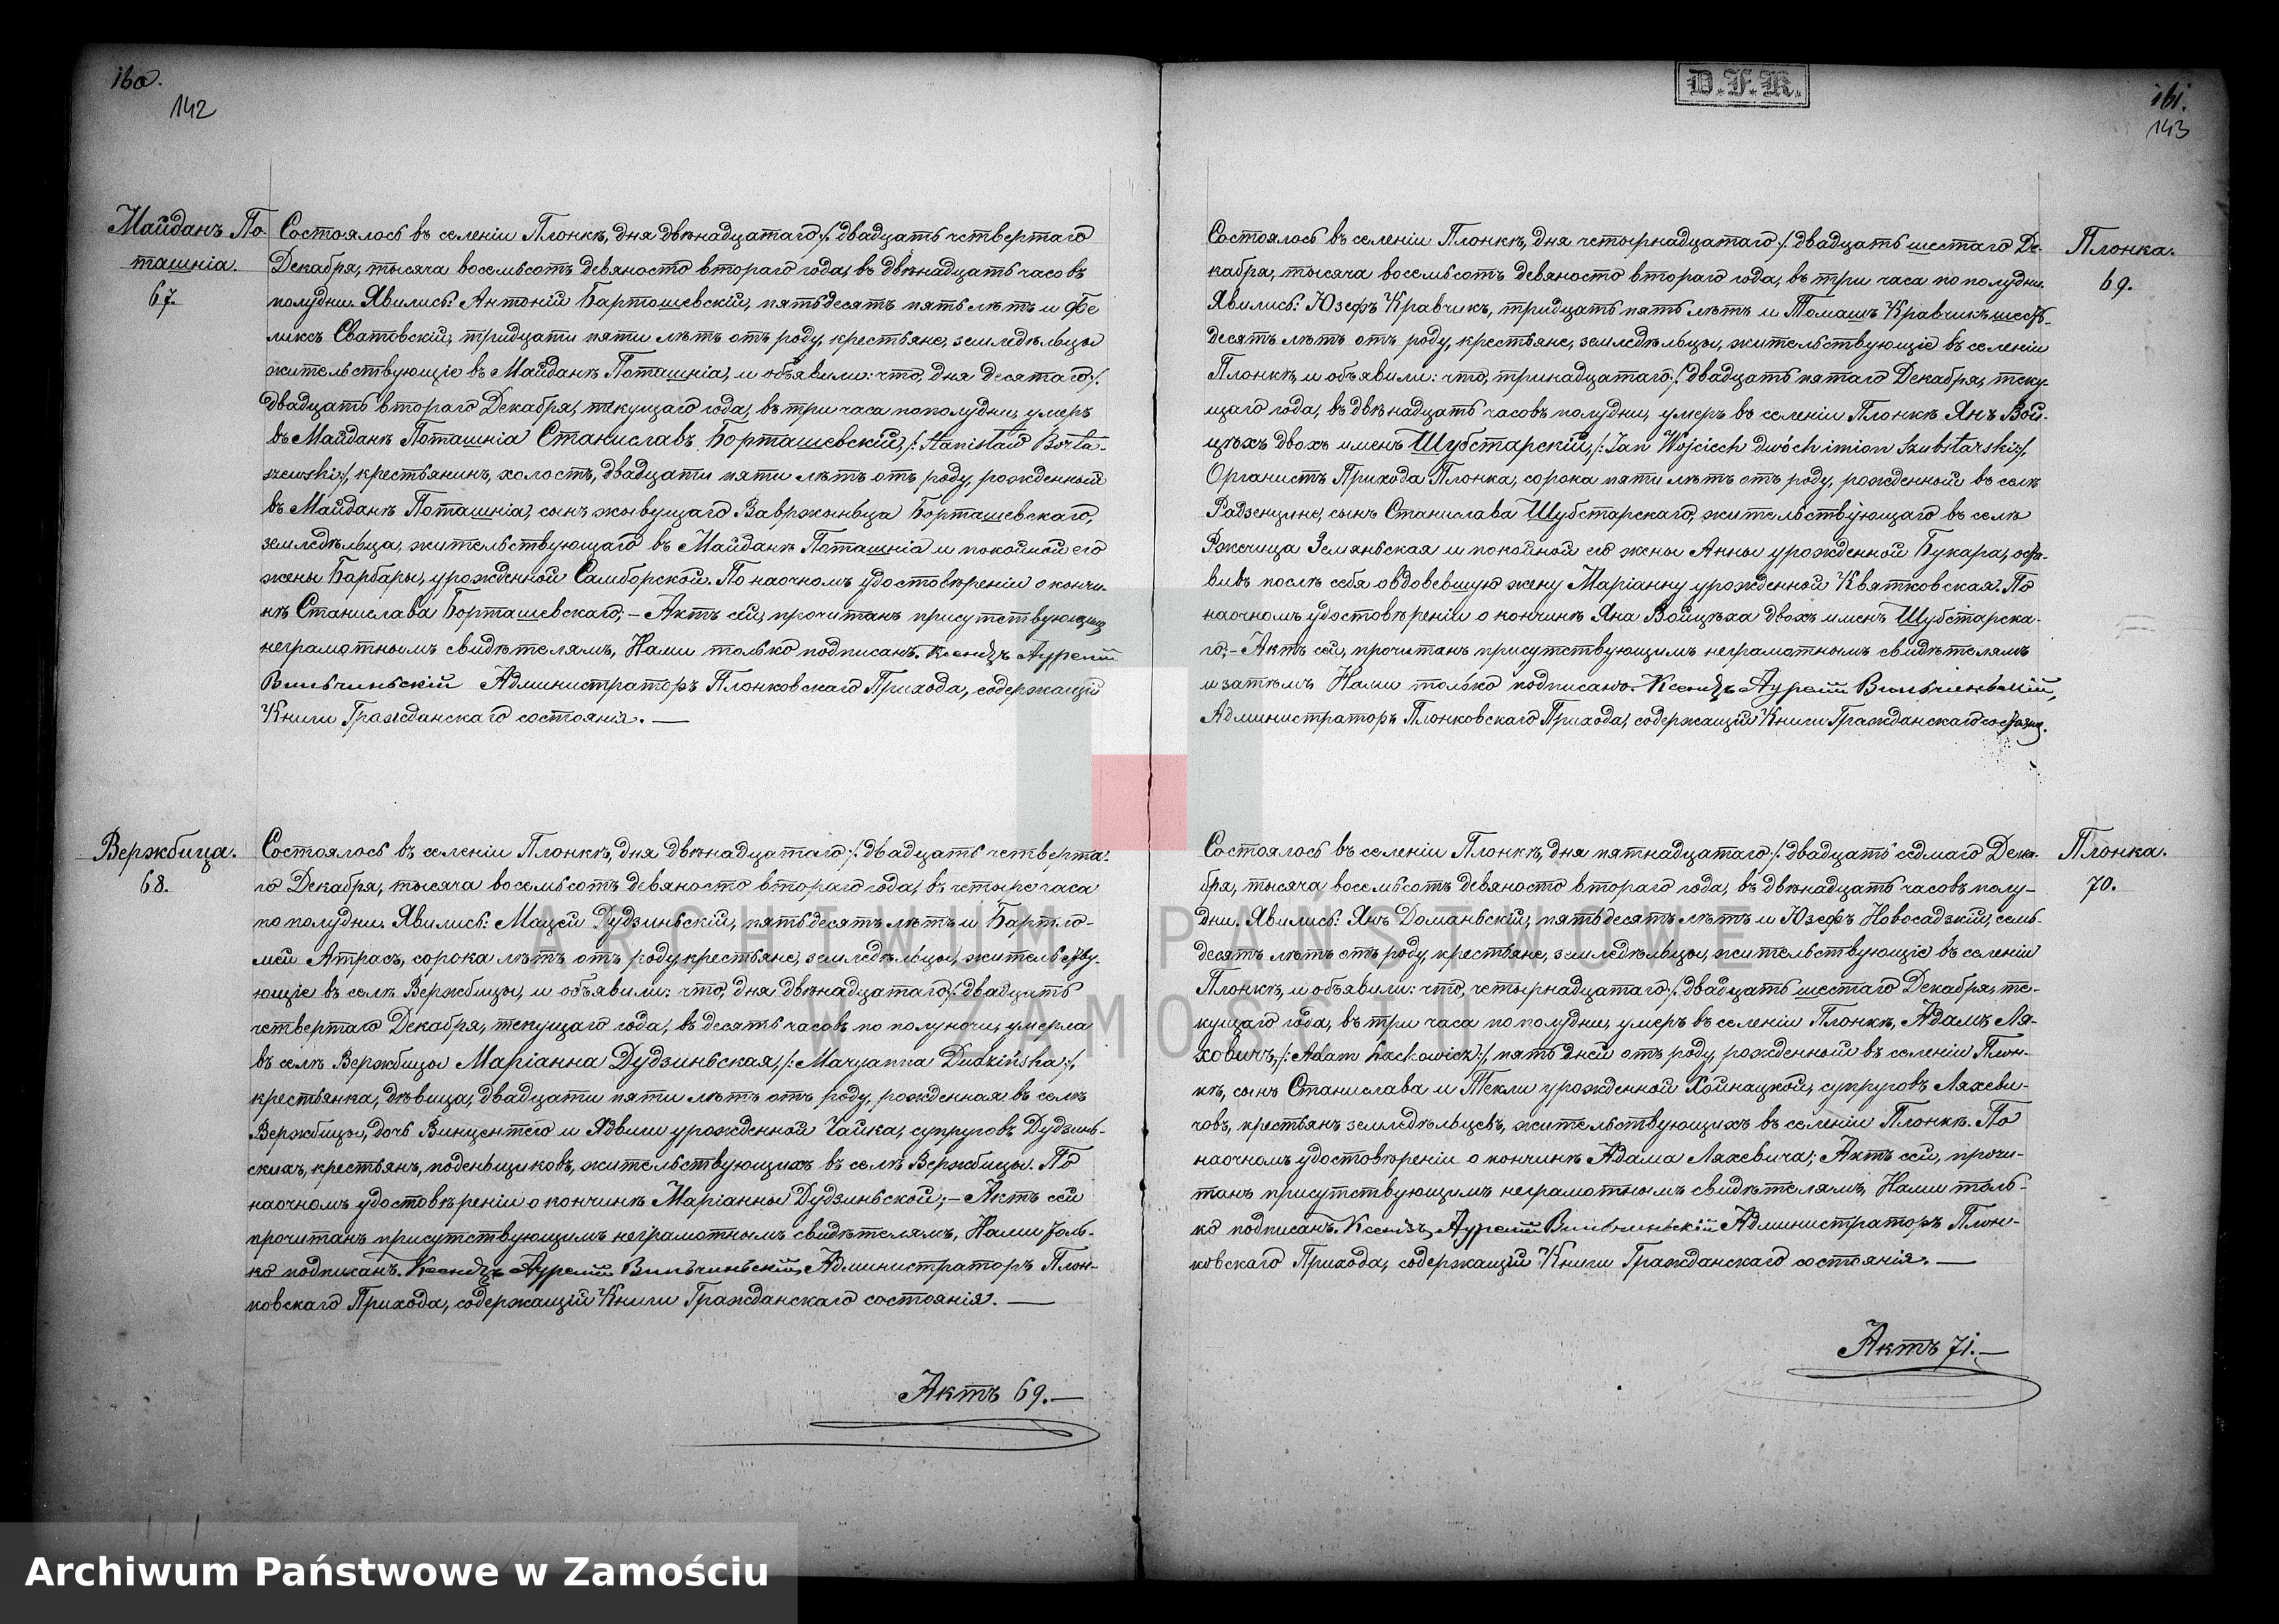 160.
142
Майданъ По-
ташнія.
67.
Состоялось въ селеніи Плонкѣ, дня двѣнадцатаго /: двадцать четвертаго
Декабря, тысяча восемьсотъ девяносто втораго года, въ двѣнадцать часовъ
полудни. Явились: Антоній Барташевскій, пятьдесятъ пять лѣтъ и Фе
ликсъ Сватовскій, тридцати пяти лѣтъ отъ роду, крестьяне, земледѣльцы
жительствующіе въ Майданѣ Поташнія, и объявили: что, дня десятаго /:
двадцать втораго Декабря, текущаго года, въ три часа пополудни, умеръ
въ Майданѣ Поташнія Станиславъ Борташевскій, /: Stanisław Borta-
szewski :/, крестьянинъ, холостъ, двадцати пяти лѣтъ отъ роду, рожденный
въ Майданѣ Поташнія, сынъ живущаго Вавржыньца Борташевскаго,
земледѣльца, жительствующаго въ Майданѣ Поташнія и покойной его
жены Барбары, урожденной Самборской. По наочномъ удостовѣреніи о кончи-
нѣ Станислава Борташевскаго; – Актъ сей, прочитанъ присутствующимъ
неграмотнымъ свидѣтелямъ, Нами только подписанъ. Ксендзъ Аурелій
Вильчиньскій Администраторъ Плонковскаго Прихода, содержащій
Книги Гражданскаго состоянія. —
Вержбица.
68.
Состоялось въ селеніи Плонкѣ, дня двѣнадцатаго /: двадцать четверта-
го Декабря, тысяча восемьсотъ девяносто втораго года, въ четыре часа
по полудни. Явились: Мацей Дудзиньскій, пятьдесятъ лѣтъ и Бартло-
мей Атрасъ, сорока лѣтъ отъ роду крестьяне, земледѣльцы, жительству-
ющіе въ селѣ Вержбицы, и объявили: что, дня двѣнадцатаго /: двадцать
четвертаго Декабря, текущаго года, въ десять часовъ по полуночи, умерла
въ селѣ Вержбицы Маріанна Дудзиньская, /: Maryanna Dudzińska :/,
крестьянка, дѣвица, двадцати пяти лѣтъ отъ роду, рожденная въ селѣ
Вержбицы, дочь Винцентего и Ядвиги урожденной Чайка, супруговъ Дудзинь-
скихъ, крестьянъ, поденьщиковъ, жительствующихъ въ селѣ Вержбицы. По
наочномъ удостовѣреніи о кончинѣ Маріанны Дудзиньской; – Актъ сей
прочитанъ присутствующимъ неграмотнымъ свидѣтелямъ, Нами толь-
ко подписанъ. Ксендзъ Аурелій Вильчиньскій, Администраторъ Плон-
ковскаго Прихода, содержащій Книги Гражданскаго состоянія. —
Актъ 69. —
D.F.K.
161.
143
Плонка.
69.
Состоялось въ селеніи Плонкѣ, дня четырнадцатаго /: двадцать шестаго Де-
кабря, тысяча восемьсотъ девяносто втораго года, въ три часа по полудни.
Явились: Юзефъ Кравчикъ, тридцать пять лѣтъ и Томашъ Кравчикъ шесть-
десятъ лѣтъ отъ роду, крестьяне, земледѣльцы, жительствующіе въ селеніи
Плонкѣ, и объявили: что, тринадцатаго /: двадцать пятаго Декабря, теку-
щаго года, въ двѣнадцать часовъ полудни, умеръ въ селеніи Плонкѣ Янъ Вой-
цѣхъ двохъ именъ Шубстарскій, /: Jan Wojciech dwóch imion Szubstarski :/,
Органистъ Прихода Плонка, сорока пяти лѣтъ отъ роду, рожденной въ селѣ
Радзенцине, сынъ Станислава Шубстарскаго, жительствующаго въ селѣ
Ржечица Земяньская и покойной его жены Анны урожденной Букара, оста-
вивъ послѣ себя овдовевшую жену Маріанну урожденной Квятковская. По
наочномъ удостовѣреніи о кончинѣ Яна Войцѣха двохъ именъ Шубстарска-
го; – Актъ сей, прочитанъ присутствующимъ неграмотнымъ свидѣтелямъ
и затѣмъ Нами только подписанъ. Ксендзъ Аурелій Вильчиньскій,
Администраторъ Плонковскаго Прихода, содержащій Книги Гражданскаго состоянія.
Плонка.
70.
Состоялось въ селеніи Плонкѣ, дня пятнадцатаго /: двадцать седмаго Дека-
бря, тысяча восемьсотъ девяносто втораго года, въ двѣнадцать часовъ полу-
дни. Явились: Янъ Доманьскій, пятьдесятъ лѣтъ и Юзефъ Новосадзкій, семь-
десятъ лѣтъ отъ роду, крестьяне, земледѣльцы, жительствующіе въ селеніи
Плонкѣ, и объявили: что, четырнадцатаго /: двадцать шестаго Декабря, те-
кущаго года, въ три часа по полудни, умеръ въ селеніи Плонкѣ, Адамъ Ля-
ховичъ, /: Adam Lachowicz :/, пять дней отъ роду, рожденный въ селеніи Плон-
кѣ, сынъ Станислава и Текли урожденной Хойнацкой, супруговъ Ляхеви-
човъ, крестьянъ земледѣльцевъ, жительствующихъ въ селеніи Плонкѣ. По
наочномъ удостовѣреніи о кончинѣ Адама Ляхевича; Актъ сей, прочи-
танъ присутствующимъ неграмотнымъ свидѣтелямъ, Нами толь-
ко подписанъ. Ксендзъ Аурелій Вильчиньскій Администраторъ Плон-
ковскаго Прихода, содержащій Книги Гражданскаго состоянія. —
Актъ 71. —
ARCHIWUM PAŃSTWOWE
W ZAMOŚCIU
Archiwum Państwowe w Zamościu